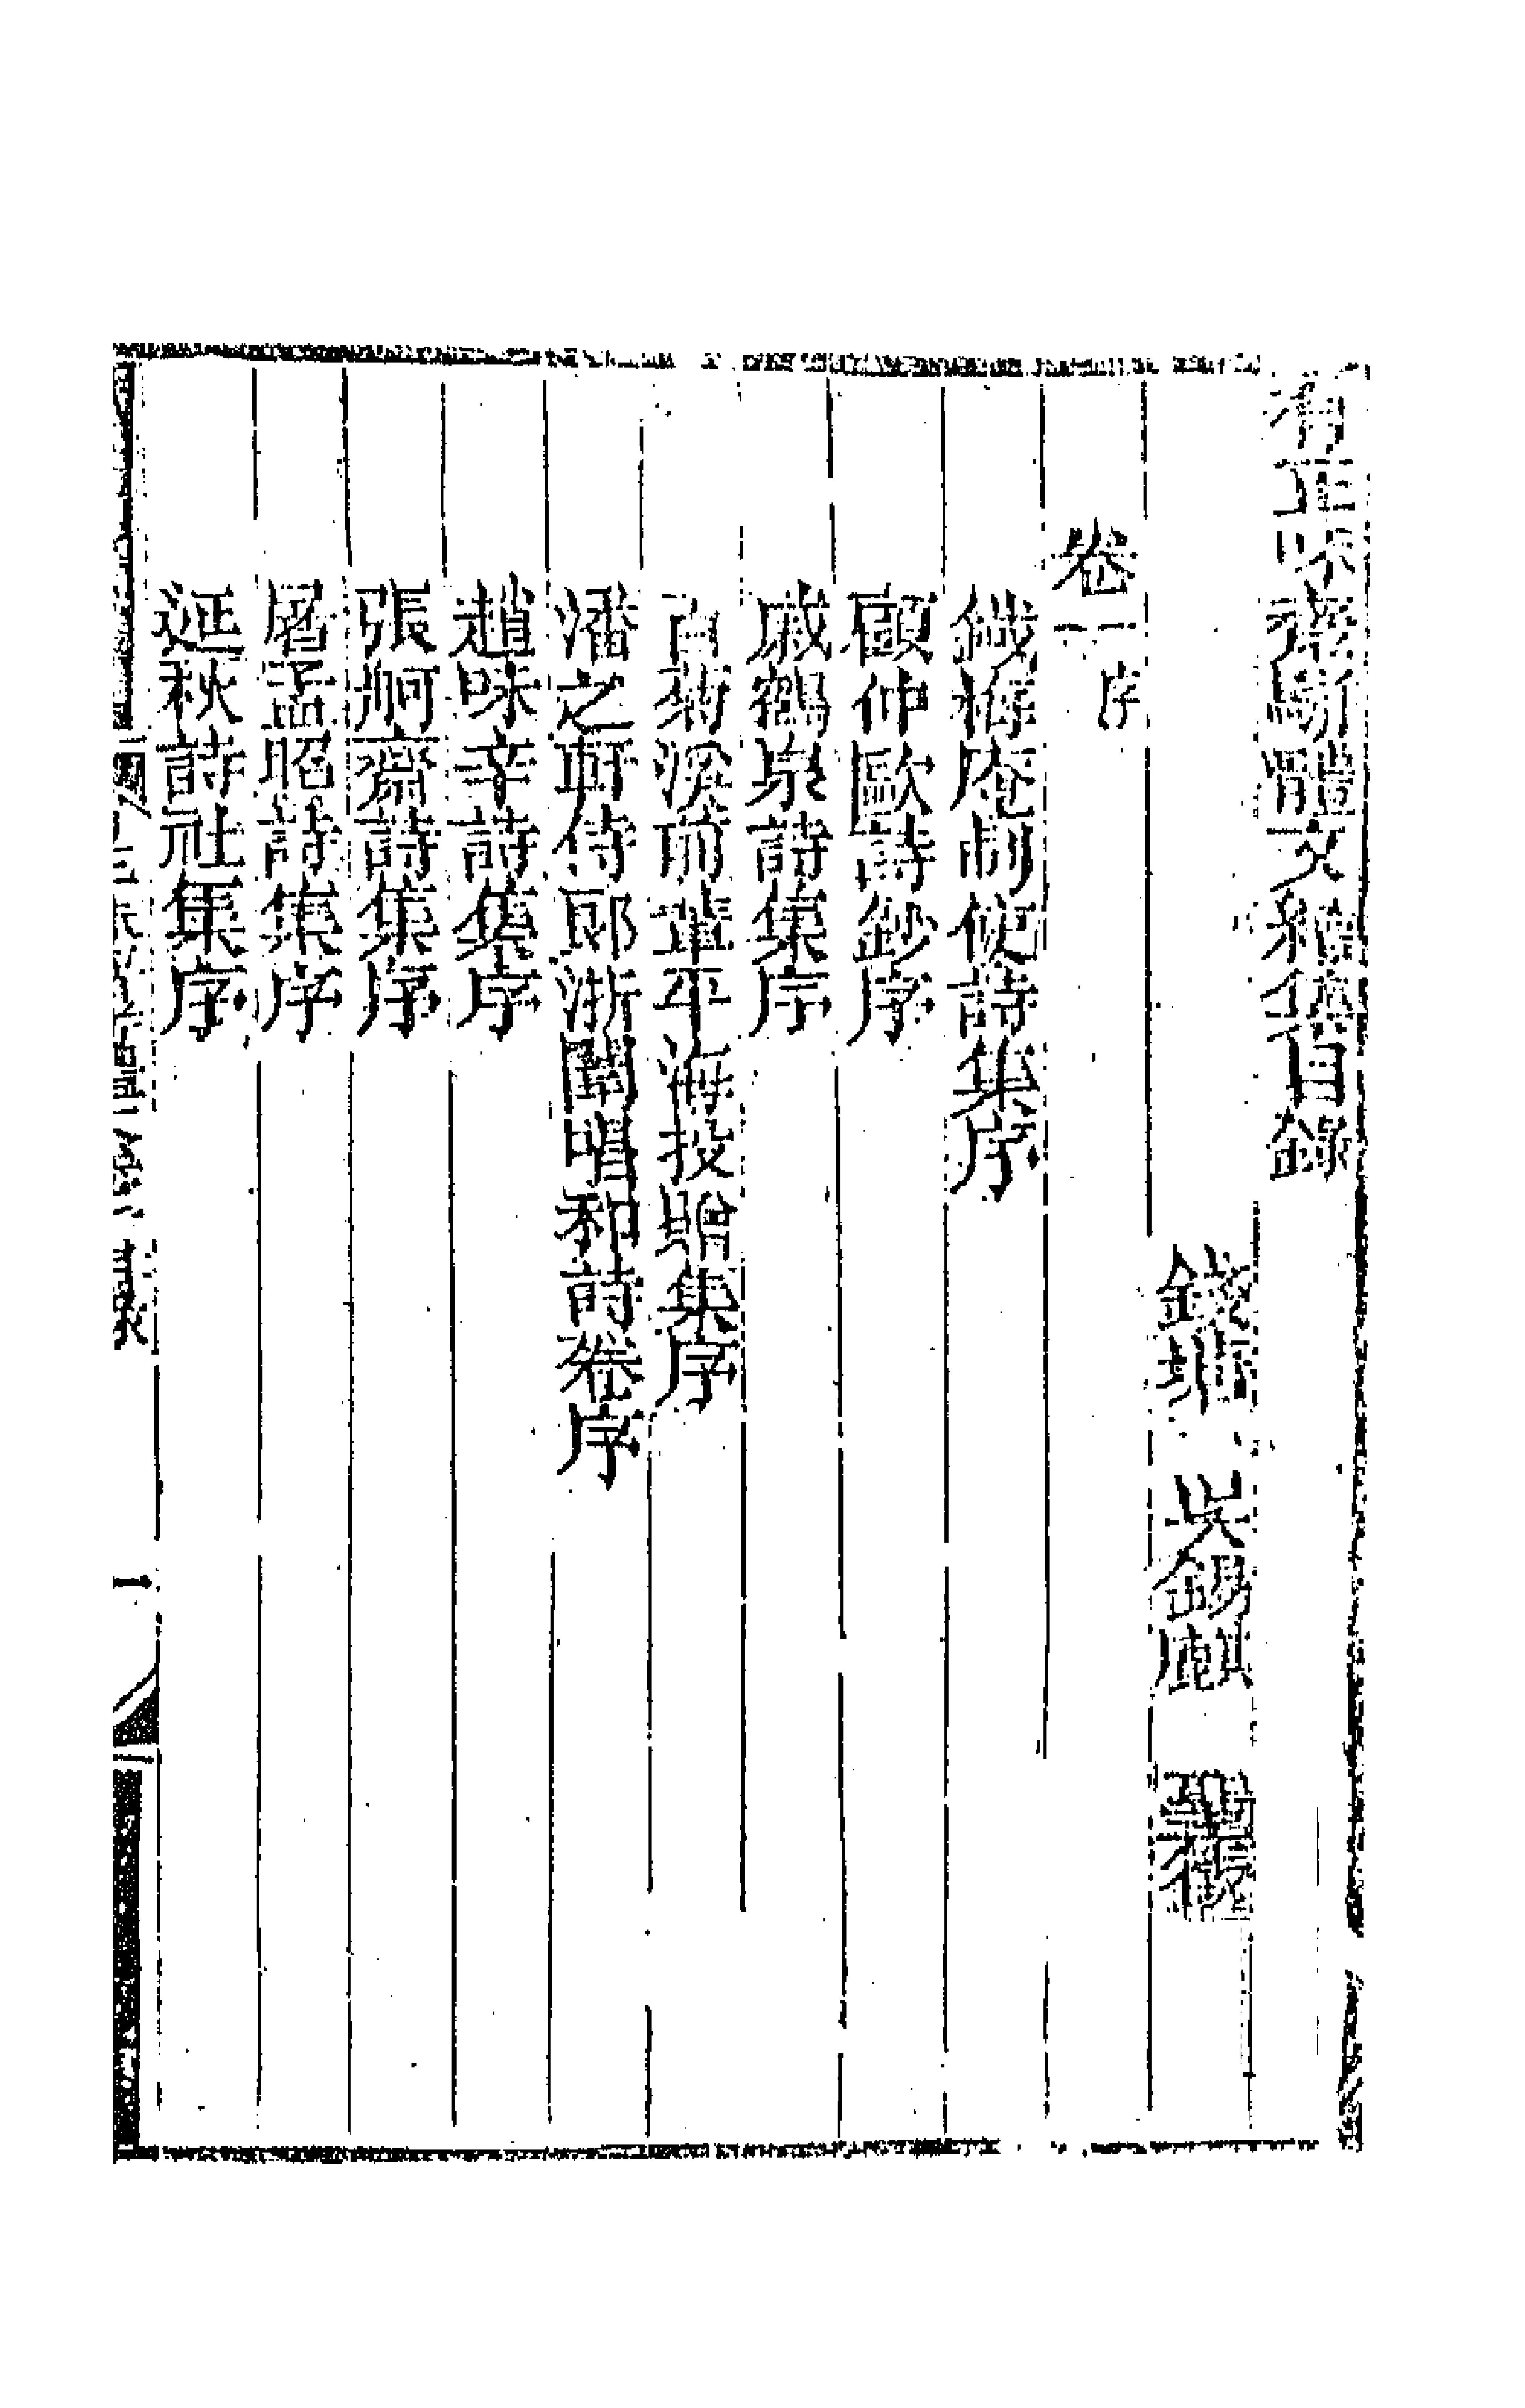 有正味齋駢體文續集目錄
錢塘 吳錫麒 聖徵
卷一 序
鐵梅庵制使詩集序
顧仲歐詩鈔序
戚鶴泉詩集序
百菊溪前輩平海投贈集序
潘之軒侍郎浙闈唱和詩卷序
趙味辛詩集序
張舸齋詩集序
屠孟昭詩集序
延秋詩社集序